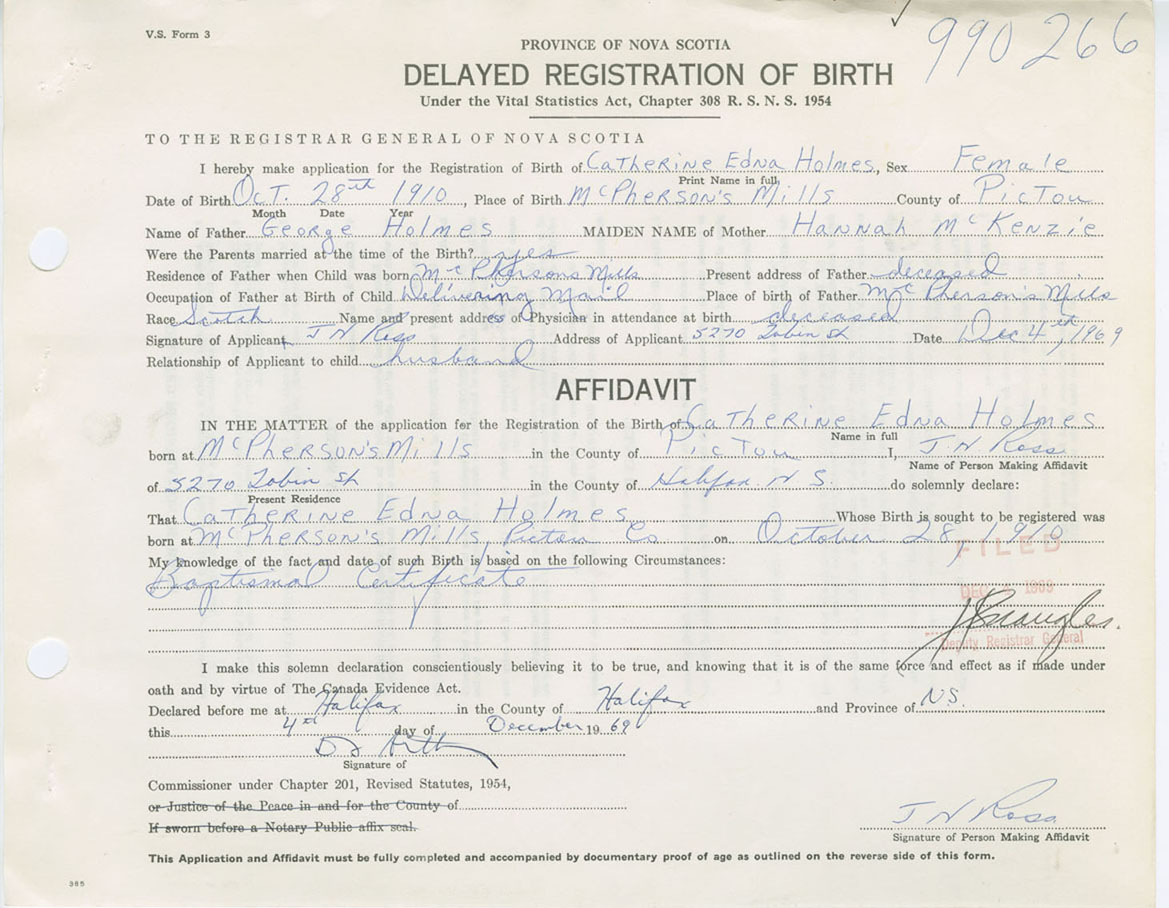 V.S. Form 3
990266
PROVINCE OF NOVA SCOTIA
DELAYED REGISTRATION OF BIRTH
Under the Vital Statistics Act, Chapter 308 R. S. N. S. 1954
TO THE REGISTRAR GENERAL OF NOVA SCOTIA
I hereby make application for the Registration of Birth of Catherine Edna Holmes, Sex Female
Print Name in full
Date of Birth Oct. 28th 1910, Place of Birth McPherson's Mills County of Pictou
Month Date Year
Name of Father George Holmes MAIDEN NAME of Mother Hannah McKenzie
Were the Parents married at the time of the Birth? yes
Residence of Father when Child was born McPhersons Mills Present address of Father deceased
Occupation of Father at Birth of Child Delivering Mail Place of birth of Father McPherson's Mills
Race Scotch Name and present address of Physician in attendance at birth deceased
Signature of Applicant J N Ross Address of Applicant 5270 Tobin St Date Dec 4th, 1969
Relationship of Applicant to child husband
AFFIDAVIT
IN THE MATTER of the application for the Registration of the Birth of Catherine Edna Holmes
Name in full
born at McPherson's Mills in the County of Pictou I, J. N Ross
Name of Person Making Affidavit
of 5270 Tobin St in the County of Halifax N S. do solemnly declare:
Present Residence
That Catherine Edna Holmes Whose Birth is sought to be registered was
born at McPherson's Mills, Pictou Co on October 28, 1910
FILED
My knowledge of the fact and date of such Birth is based on the following Circumstances:
Baptismal Certificate
DEC 1969
Deputy Registrar General
I make this solemn declaration conscientiously believing it to be true, and knowing that it is of the same force and effect as if made under
oath and by virtue of The Canada Evidence Act.
Declared before me at Halifax in the County of Halifax and Province of N.S.
this 4th day of December 1969
Signature of
Commissioner under Chapter 201, Revised Statutes, 1954,
or Justice of the Peace in and for the County of
If sworn before a Notary Public affix seal.
J N Ross
Signature of Person Making Affidavit
This Application and Affidavit must be fully completed and accompanied by documentary proof of age as outlined on the reverse side of this form.
385